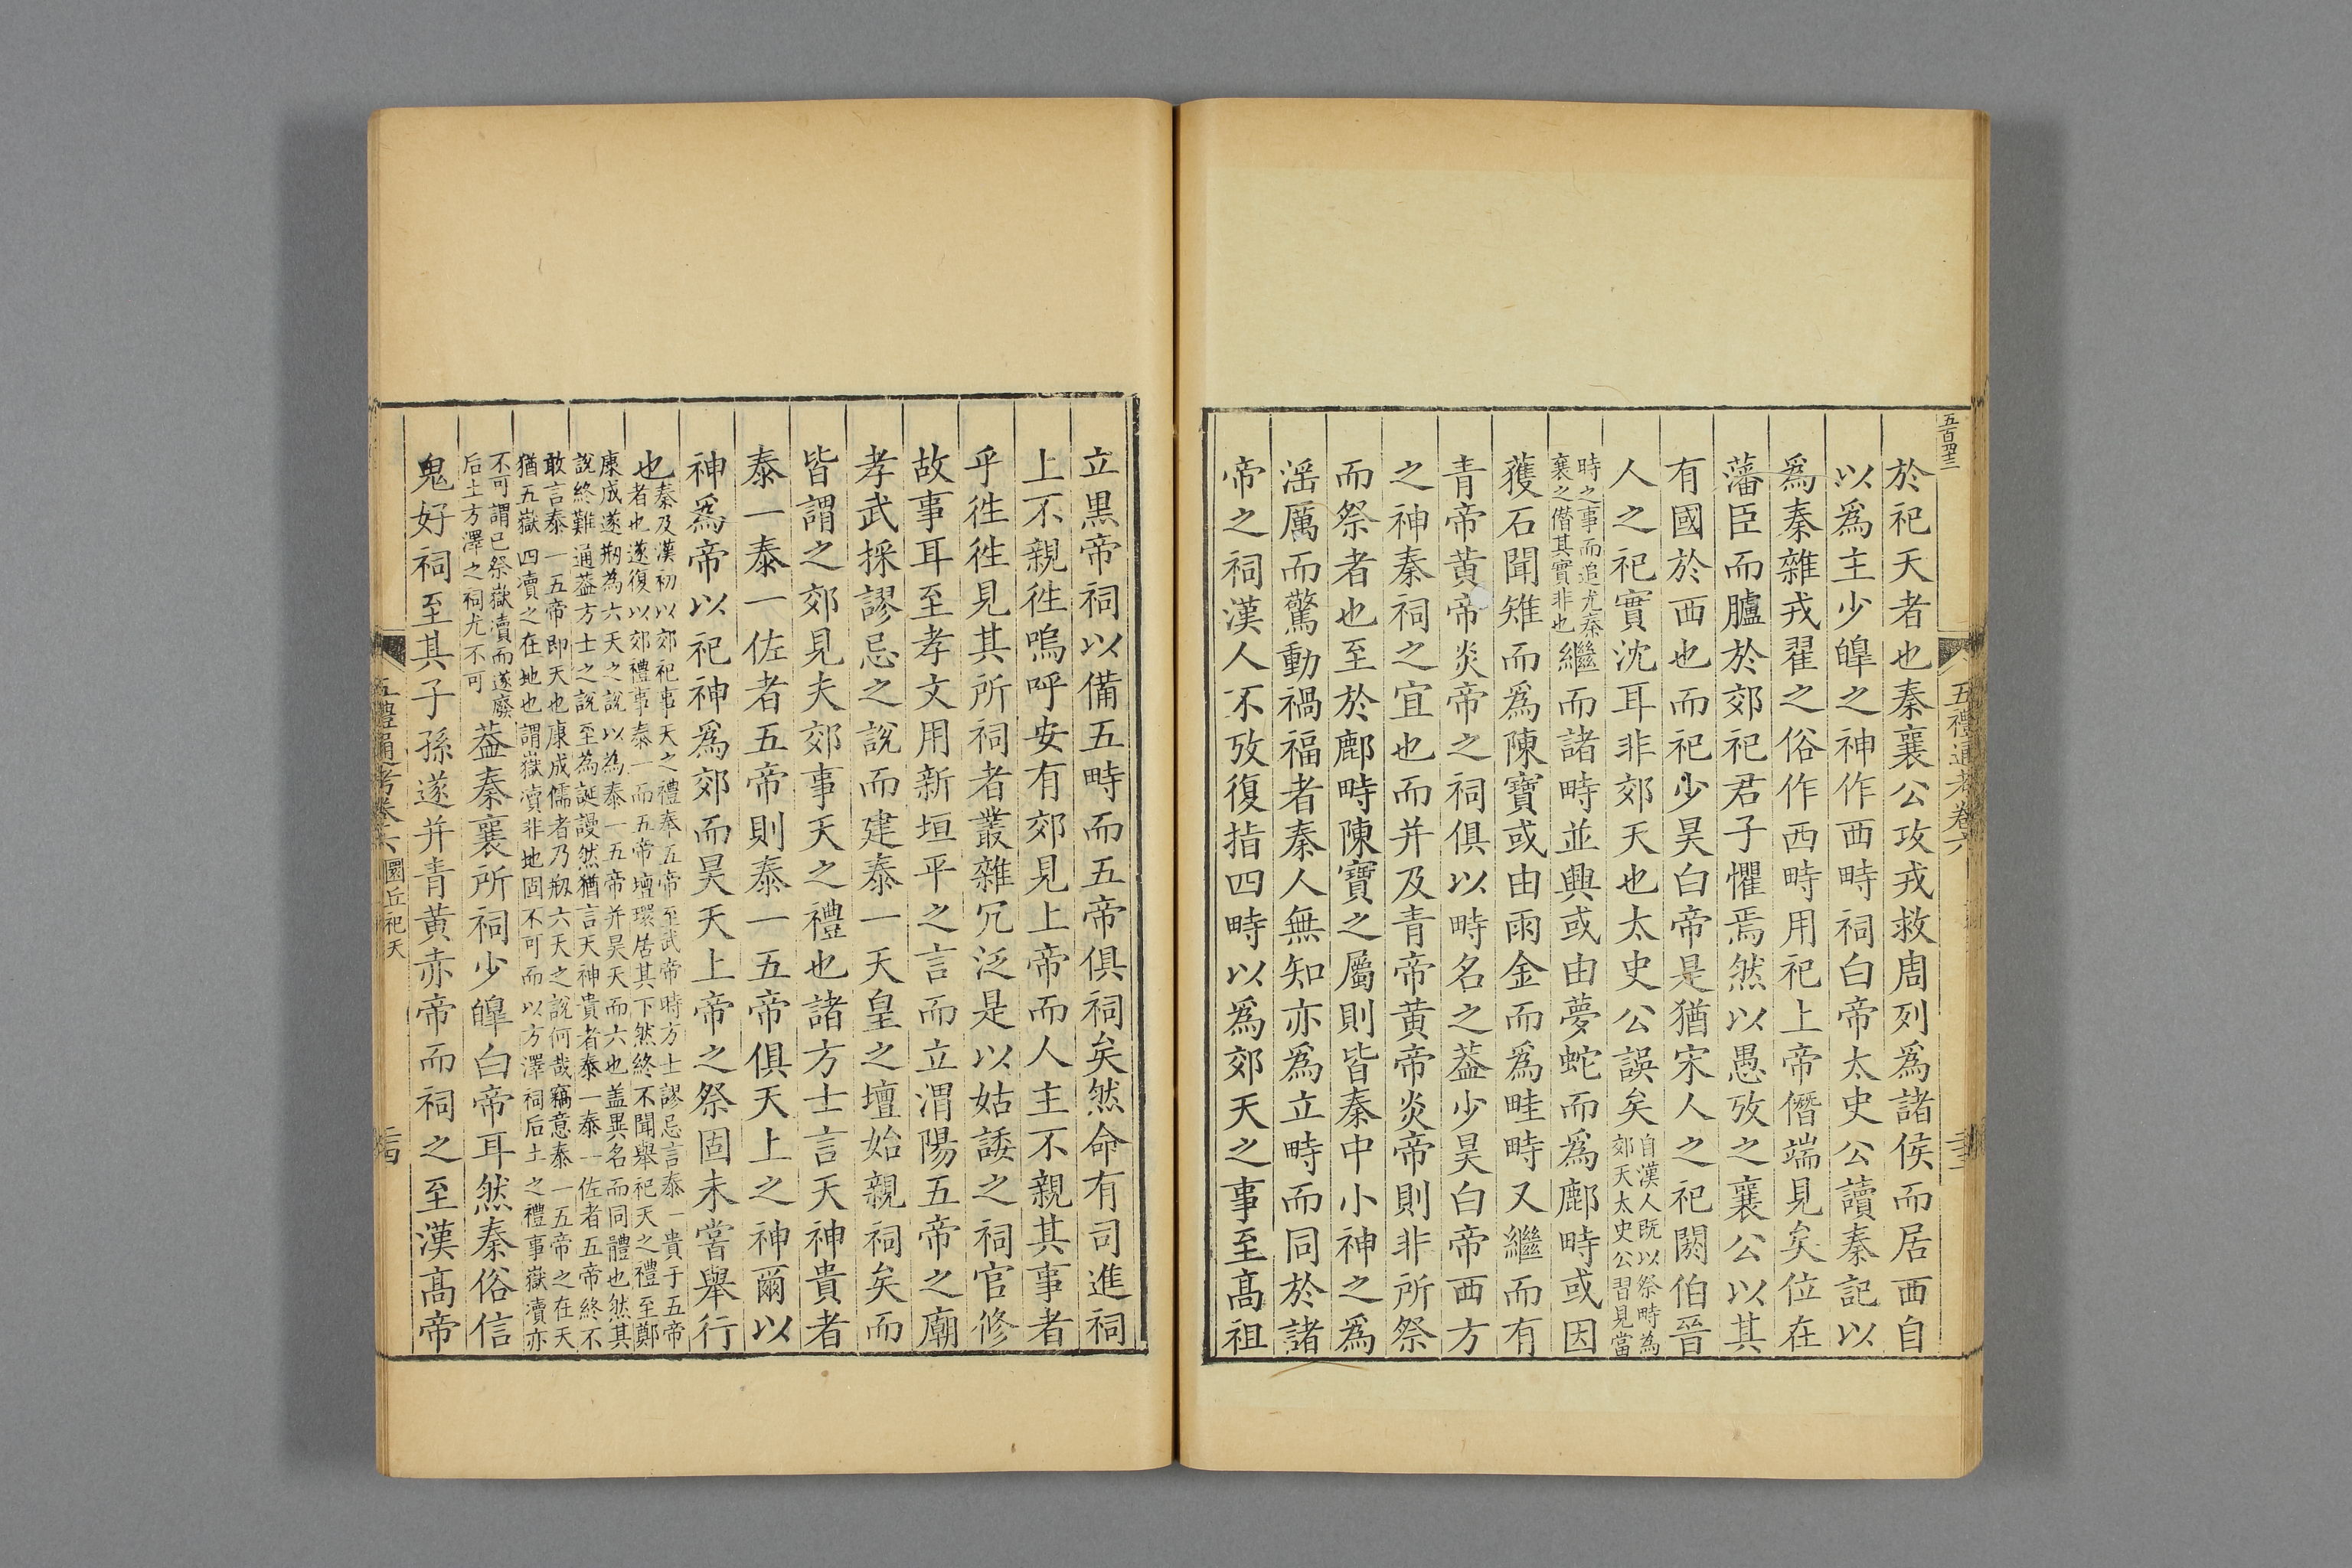 五百四三
五禮通考卷六
於祀天者也秦襄公攻戎救周列爲諸侯而居西自
以爲主少皞之神作西畤祠白帝太史公讀秦記以
爲秦雜戎翟之俗作西畤用祀上帝僭端見矣位在
藩臣而臚於郊祀君子懼焉然以愚攷之襄公以其
有國於西也而祀少昊白帝是猶宋人之祀閼伯晉
人之祀實沈耳非郊天也太史公誤矣自漢人既以祭畤為
郊天太史公習見當
時之事而追尤秦
襄之僭其實非也繼而諸畤並興或由夢蛇而爲鄜畤或因
獲石聞雉而爲陳寶或由雨金而爲畦畤又繼而有
青帝黄帝炎帝之祠俱以畤名之葢少昊白帝西方
之神秦祠之宜也而并及青帝黄帝炎帝則非所祭
而祭者也至於鄜畤陳寶之屬則皆秦中小神之爲
滛厲而驚動禍福者秦人無知亦爲立畤而同於諸
帝之祠漢人不攷復指四畤以爲郊天之事至髙祖
立黒帝祠以備五畤而五帝俱祠矣然命有司進祠
上不親徃嗚呼安有郊見上帝而人主不親其事者
乎徃徃見其所祠者叢雜冗泛是以姑諉之祠官修
故事耳至孝文用新垣平之言而立渭陽五帝之廟
孝武採謬忌之說而建泰一天皇之壇始親祠矣而
皆謂之郊見夫郊事天之禮也諸方士言天神貴者
泰一泰一佐者五帝則泰一五帝俱天上之神爾以
神爲帝以祀神爲郊而昊天上帝之祭固未嘗舉行
也秦及漢初以郊祀事天之禮奉五帝至武帝時方士謬忌言泰一貴于五帝
者也遂復以郊禮事泰一而五帝壇環居其下然終不聞舉祀天之禮至鄭
康成遂剏為六天之說以為泰一五帝并昊天而六也盖異名而同體也然其
說終難通葢方士之說至為誕謾然猶言天神貴者泰一泰一佐者五帝終不
敢言泰一五帝即天也康成儒者乃剏六天之說何哉竊意泰一五帝之在天
猶五嶽四瀆之在地也謂嶽瀆非地固不可而以方澤祠后土之禮事嶽瀆亦
不可謂已祭嶽瀆而遂廢
后土方澤之祠尤不可葢秦襄所祠少皞白帝耳然秦俗信
鬼好祠至其子孫遂并青黄赤帝而祠之至漢髙帝
五禮通考卷六 圜丘祀天